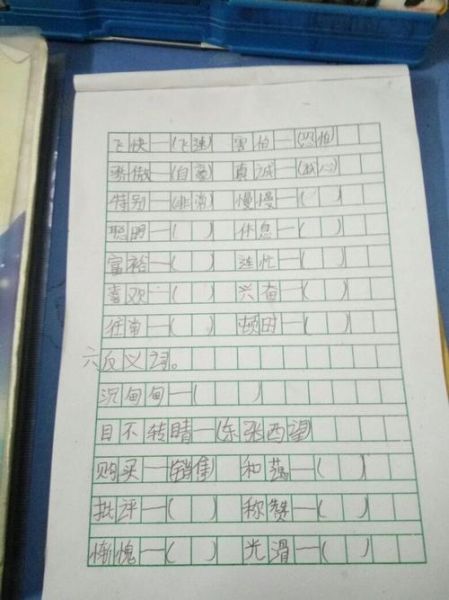 飞快—(飞速) 害怕—(恐怕)
骄傲—(自豪) 真诚—
特别—(非常) 慢慢—( )
聪明—( ) 休息—( )
富裕—( ) 连忙—( )
喜欢—( ) 兴奋—( )
往常—( ) 顿时—( )
六反义词。
沉甸甸—( )
目不转睛—(东张西望)
购买—(销售) 和蔼—( )
批评—( ) 称赞—( )
惭愧—( ) 光滑—( )